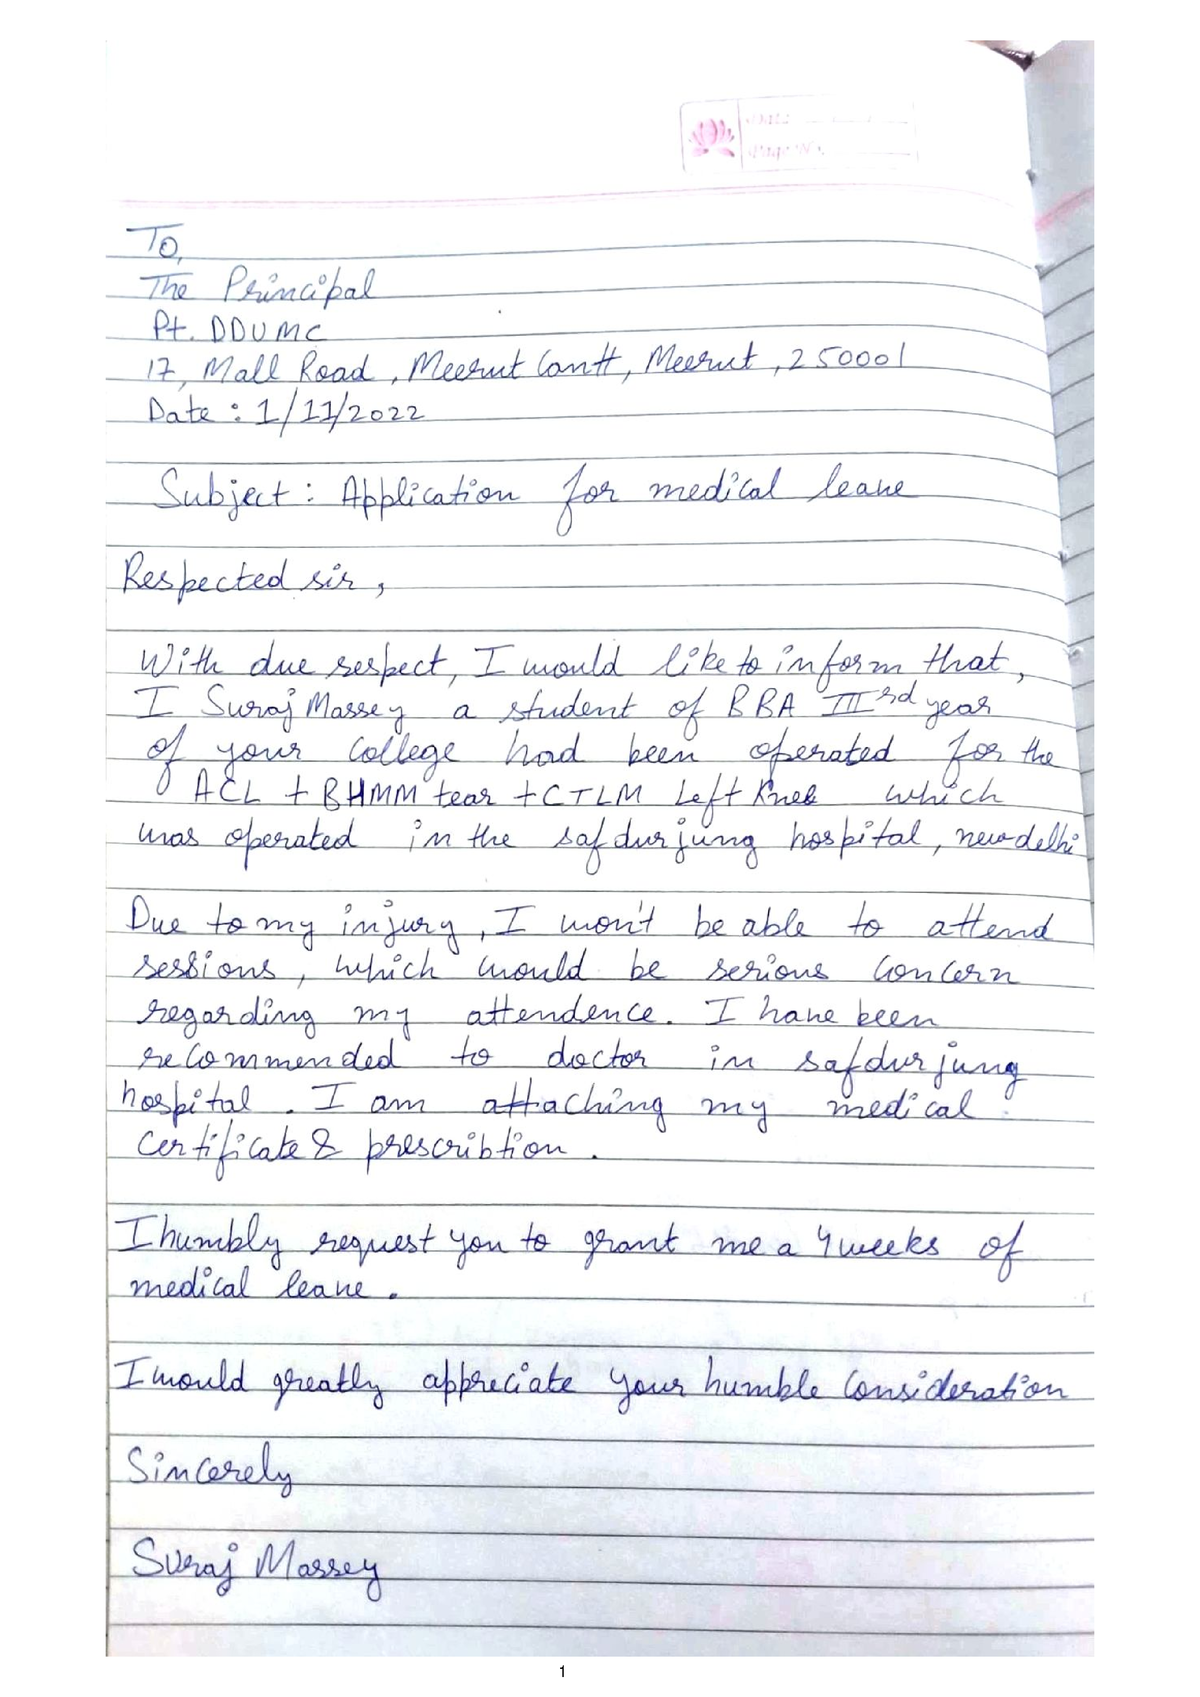 Date
Page No.
To,
The Principal
Pt. DDUMC
17, Mall Road, Meerut Cantt, Meerut, 250001
Date : 1/11/2022
Subject : Application for medical leave
Respected sir,
With due respect, I would like to inform that,
I Suraj Massey a student of BBA IIIrd year
of your college had been operated for the
ACL + BHMM tear + CTLM Left Knee which
was operated in the safdurjung hospital, new delhi
Due to my injury, I won't be able to attend
sessions, which would be serious concern
regarding my attendence. I have been
recommended to doctor in safdurjung
hospital. I am attaching my medical
certificate & prescribtion.
I humbly request you to grant me a 4 weeks of
medical leave.
I would greatly appreciate your humble consideration
Sincerely
Suraj Massey
1